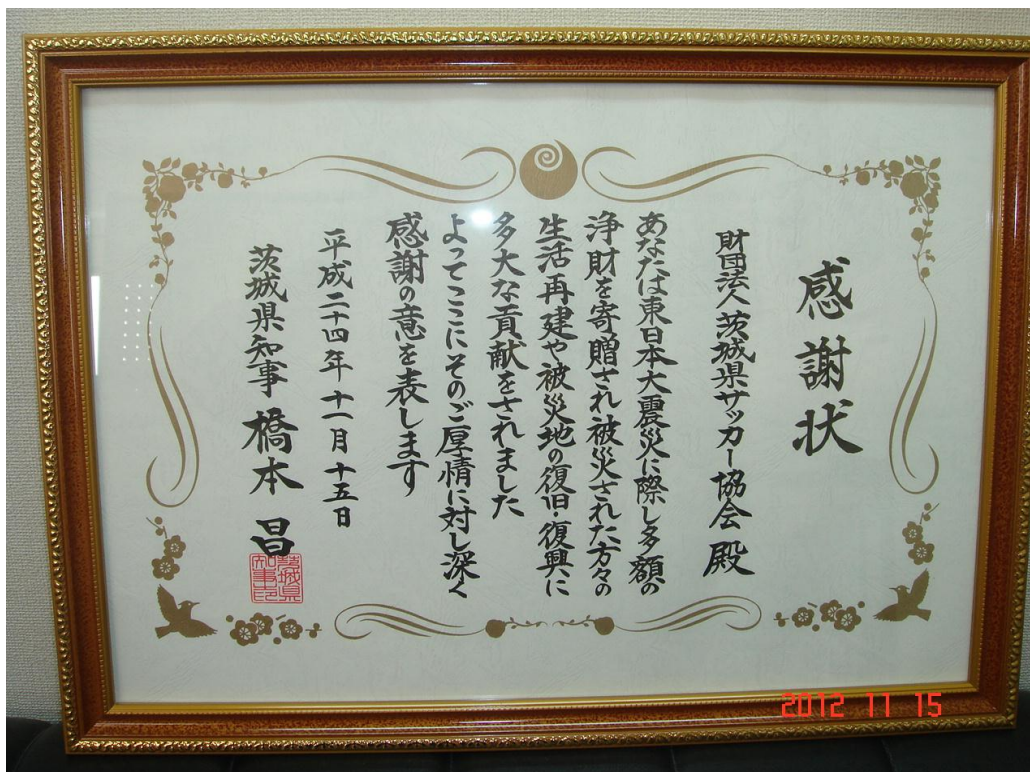 感謝状
財団法人茨城県サッカー協会 殿
あなたは東日本大震災に際し多額の
浄財を寄贈され被災された方々の
生活再建や被災地の復旧・復興に
多大な貢献をされました
よってここにそのご厚情に対し深く
感謝の意を表します
平成二十四年十一月十五日
茨城県知事 橋本 昌
茨城県知事之印
2012 11 15